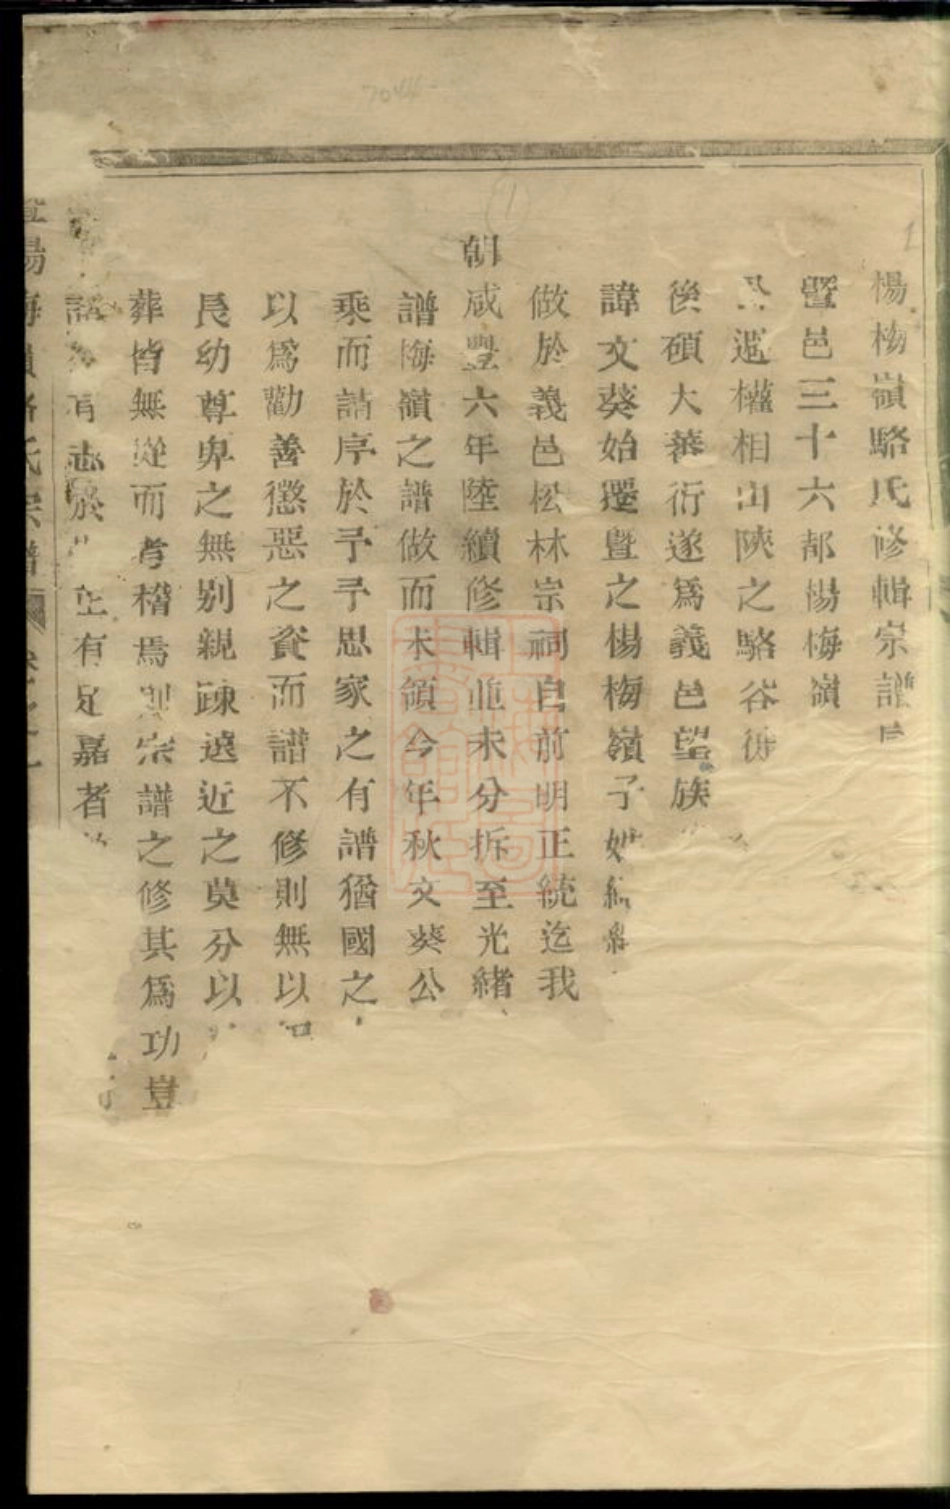 楊梅嶺駱氏修輯宗譜
暨邑三十六都楊梅嶺
遷權相山陝之駱谷
後碩大蕃衍遂為義邑望族
諱文葵始遷暨之楊梅嶺子
做於義邑松林宗祠自前明正統迄我
朝咸豐六年陸續修輯並未分拆至光緒
譜梅嶺之譜做而未領今年秋文葵公
乘而請序於予予思家之有譜猶國之
以為勸善懲惡之資而譜不修則無以
長幼尊卑之無别親疎遠近之莫分以
葬皆無從而考稽焉則宗譜之修其為功豈
有志於 有足嘉者
陽梅嶺駱氏宗譜
7044
(1)
1